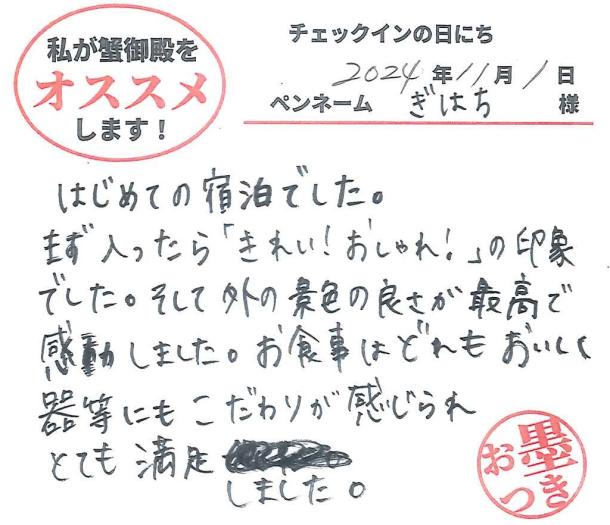 私が蟹御殿を
オススメ
します！
チェックインの日にち
2024年11月1日
ペンネーム ぎはち 様
はじめての宿泊でした。
まず入ったら「きれい！おしゃれ！」の印象
でした。そして外の景色の良さが最高で
感動しました。お食事はどれもおいしく
器等にもこだわりが感じられ
とても満足
しました。
お墨
つき